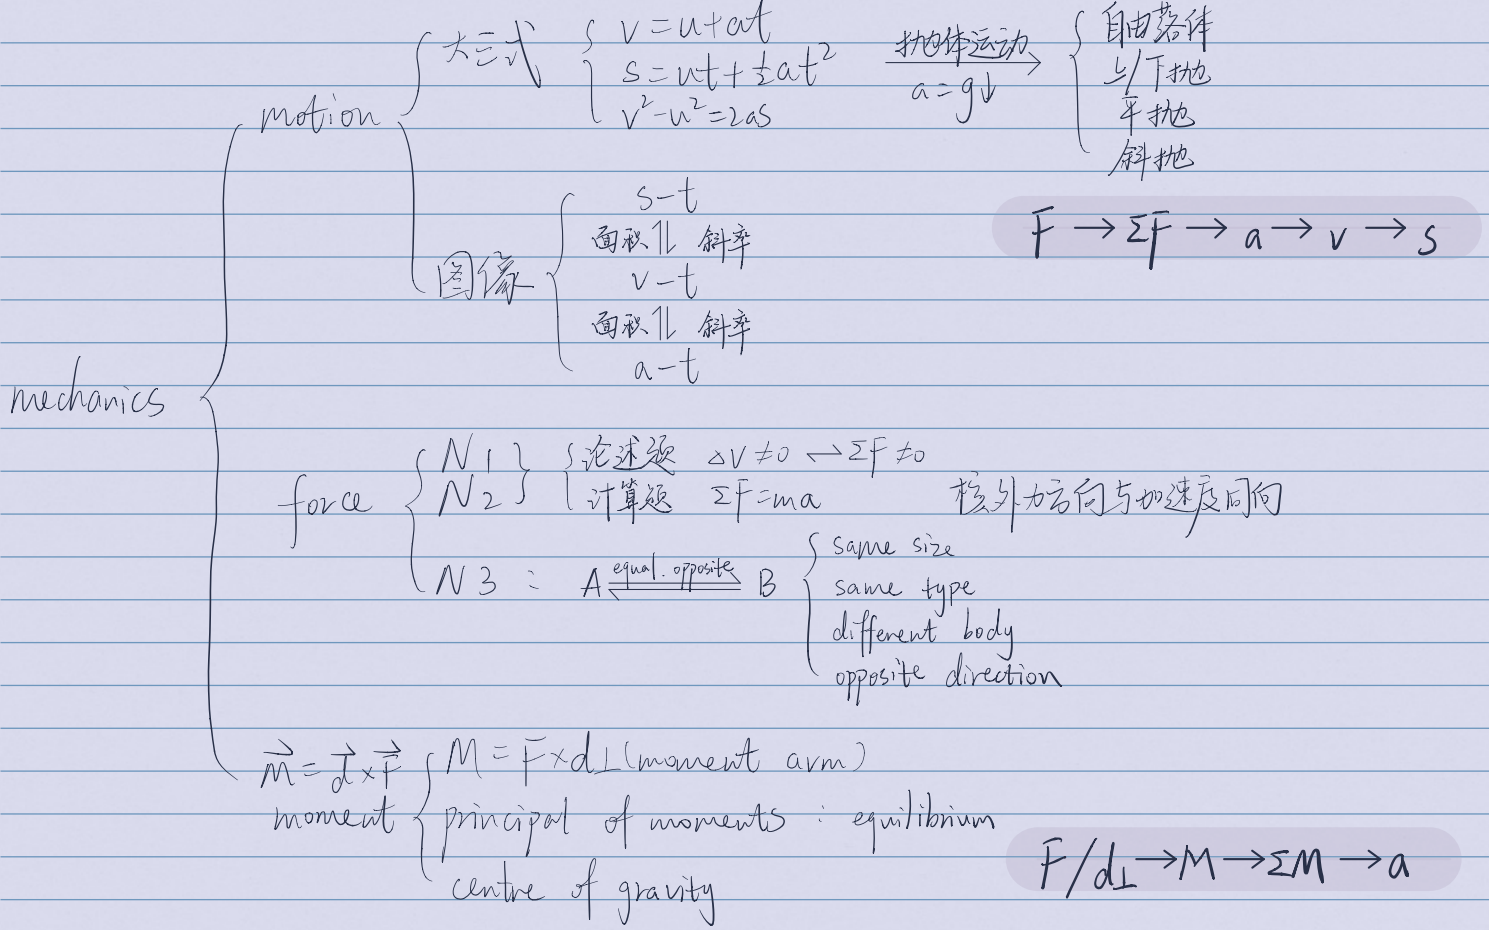 大三式 v=u+at
s=ut+½at²
v²-u²=2as
抛体运动
a=g↓
自由落体
上/下抛
平抛
斜抛
motion
图像
s-t
面积⇅ 斜率
v-t
面积⇅ 斜率
a-t
F→ΣF→a→v→s
mechanics
force
N1
N2
论述题 △v≠0 ⇌ ΣF≠0
计算题 ΣF=ma 核外力方向与加速度同向
N3: A equal. opposite B
same size
same type
different body
opposite direction
M=d×F
moment
M=F×d⊥(moment arm)
principal of moments: equilibrium
centre of gravity
F/d⊥→M→ΣM→a